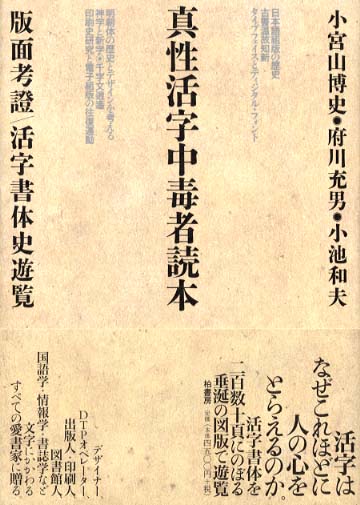 小宮山博史●府川充男●小池和夫
日本語組版の歴史
古書温故知新
タイプフェイスとディジタル・フォント
真性活字中毒者読本
明朝体の歴史とデザインを考える
印刷史研究と電子組版の往復運動
版面考證/活字書体史遊覧
活字は
なぜこれほどに
人の心を
とらえるのか。
活字書体を
二百数十頁にのぼる
垂涎の図版で遊覧
柏書房
デザイナー、
DTPオペレーター、
出版人・印刷人、
図書館人、
国語学・情報学・書誌学など
文字にかかわる
すべての愛書家に贈る